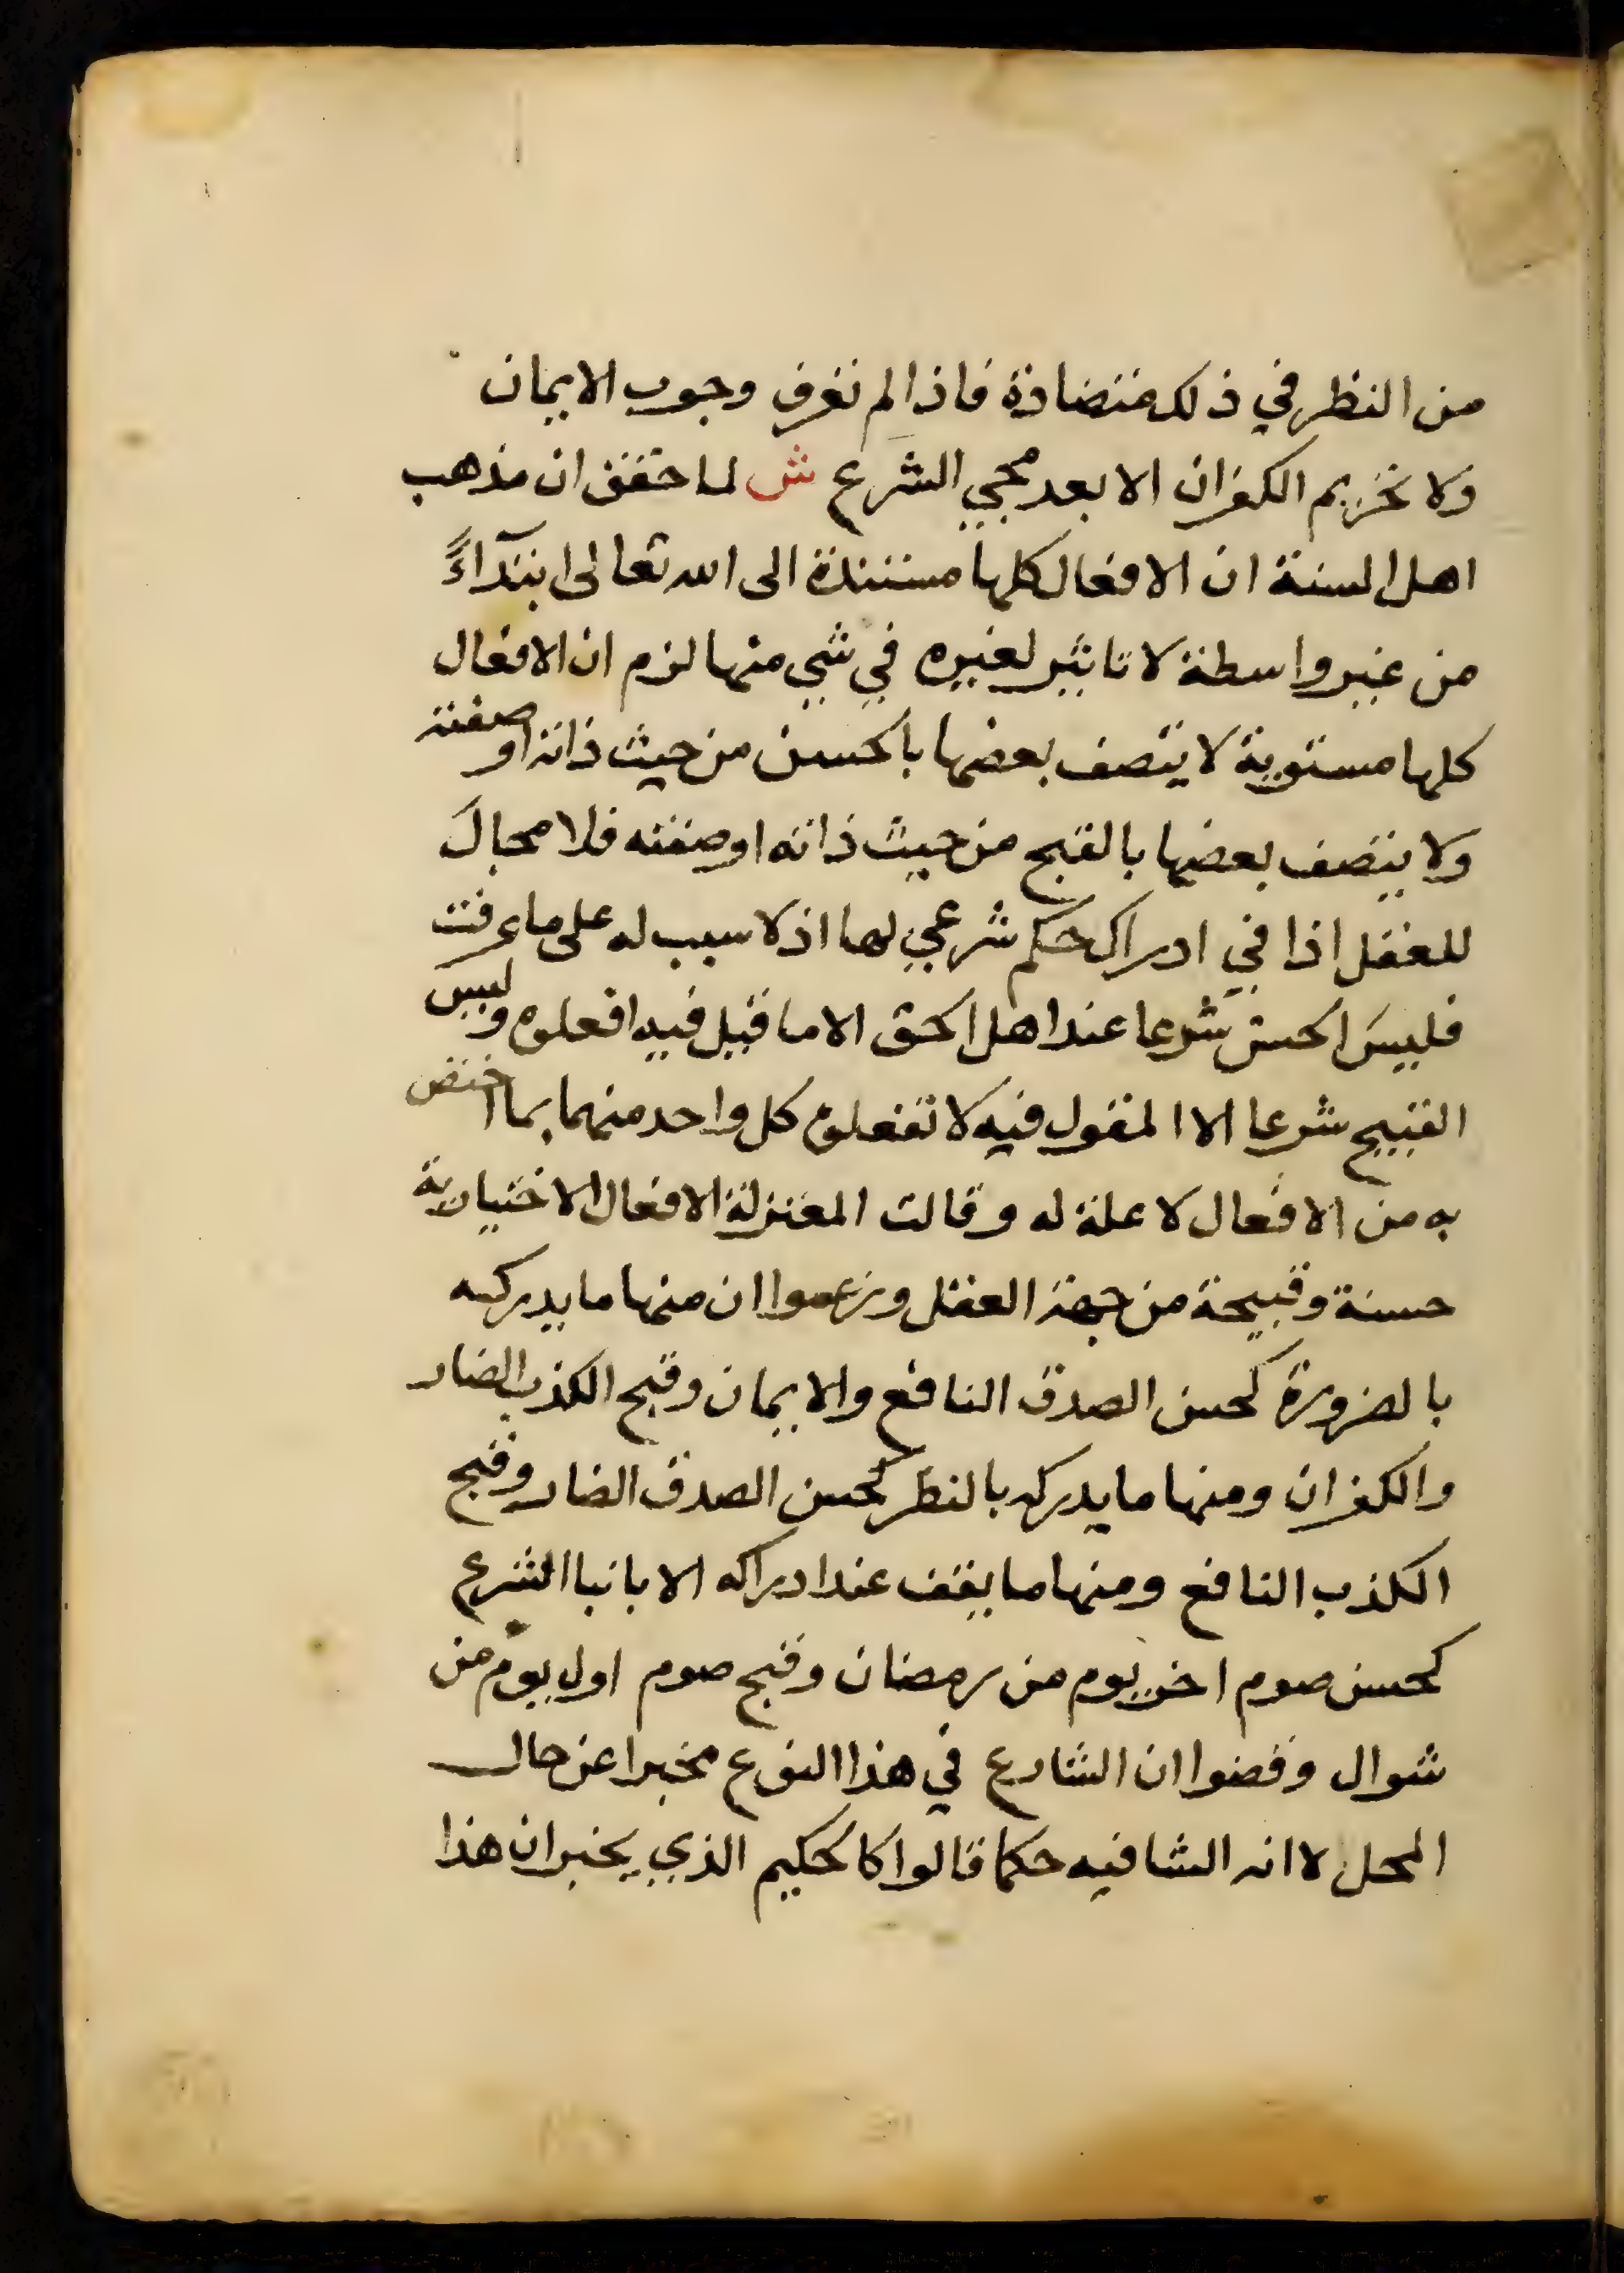 من النظر في ذلك متضادة فاذا لم تعرف وجوب الايمان
ولا تحريم الكفران الا بعد مجي الشرع ش لما حقق ان مذهب
اهل السنة ان الافعال كلها مستندة الى الله تعالى ابتدآءً
من غير واسطة لا تاثير لغيره في شي منها لزم ان الافعال
كلها مستوية لا يتصف بعضها بالحسن من حيث ذاته او صفته
ولا يتصف بعضها بالقبح من حيث ذاته او صفته فلا مجال
للعقل اذا في ادراك حكم شرعي لها اذ لا سبب له على ما عرفت
فليس الحسن شرعا عند اهل الحق الا ما قيل فيه افعلوه وليس
القبيح شرعا الا المقول فيه لا تفعلوه كل واحد منهما بما اختص
به من الافعال لا علة له وقالت المعتزلة الافعال الاختيارية
حسنة وقبيحة من جهة العقل وزعموا ان منها ما يدركه
بالضرورة كحسن الصدق النافع والايمان وقبح الكذب الضار
والكفران ومنها ما يدركه بالنظر كحسن الصدق الضار وقبح
الكذب النافع ومنها ما يقف عند ادراكه الا بانبا الشرع
كحسن صوم اخر يوم من رمضان وقبح صوم اول يوم من
شوال وقضوا ان الشارع في هذا النوع مخبرا عن حال
المحل لا انه انشا فيه حكما قالوا كالحكيم الذي يخبر ان هذا